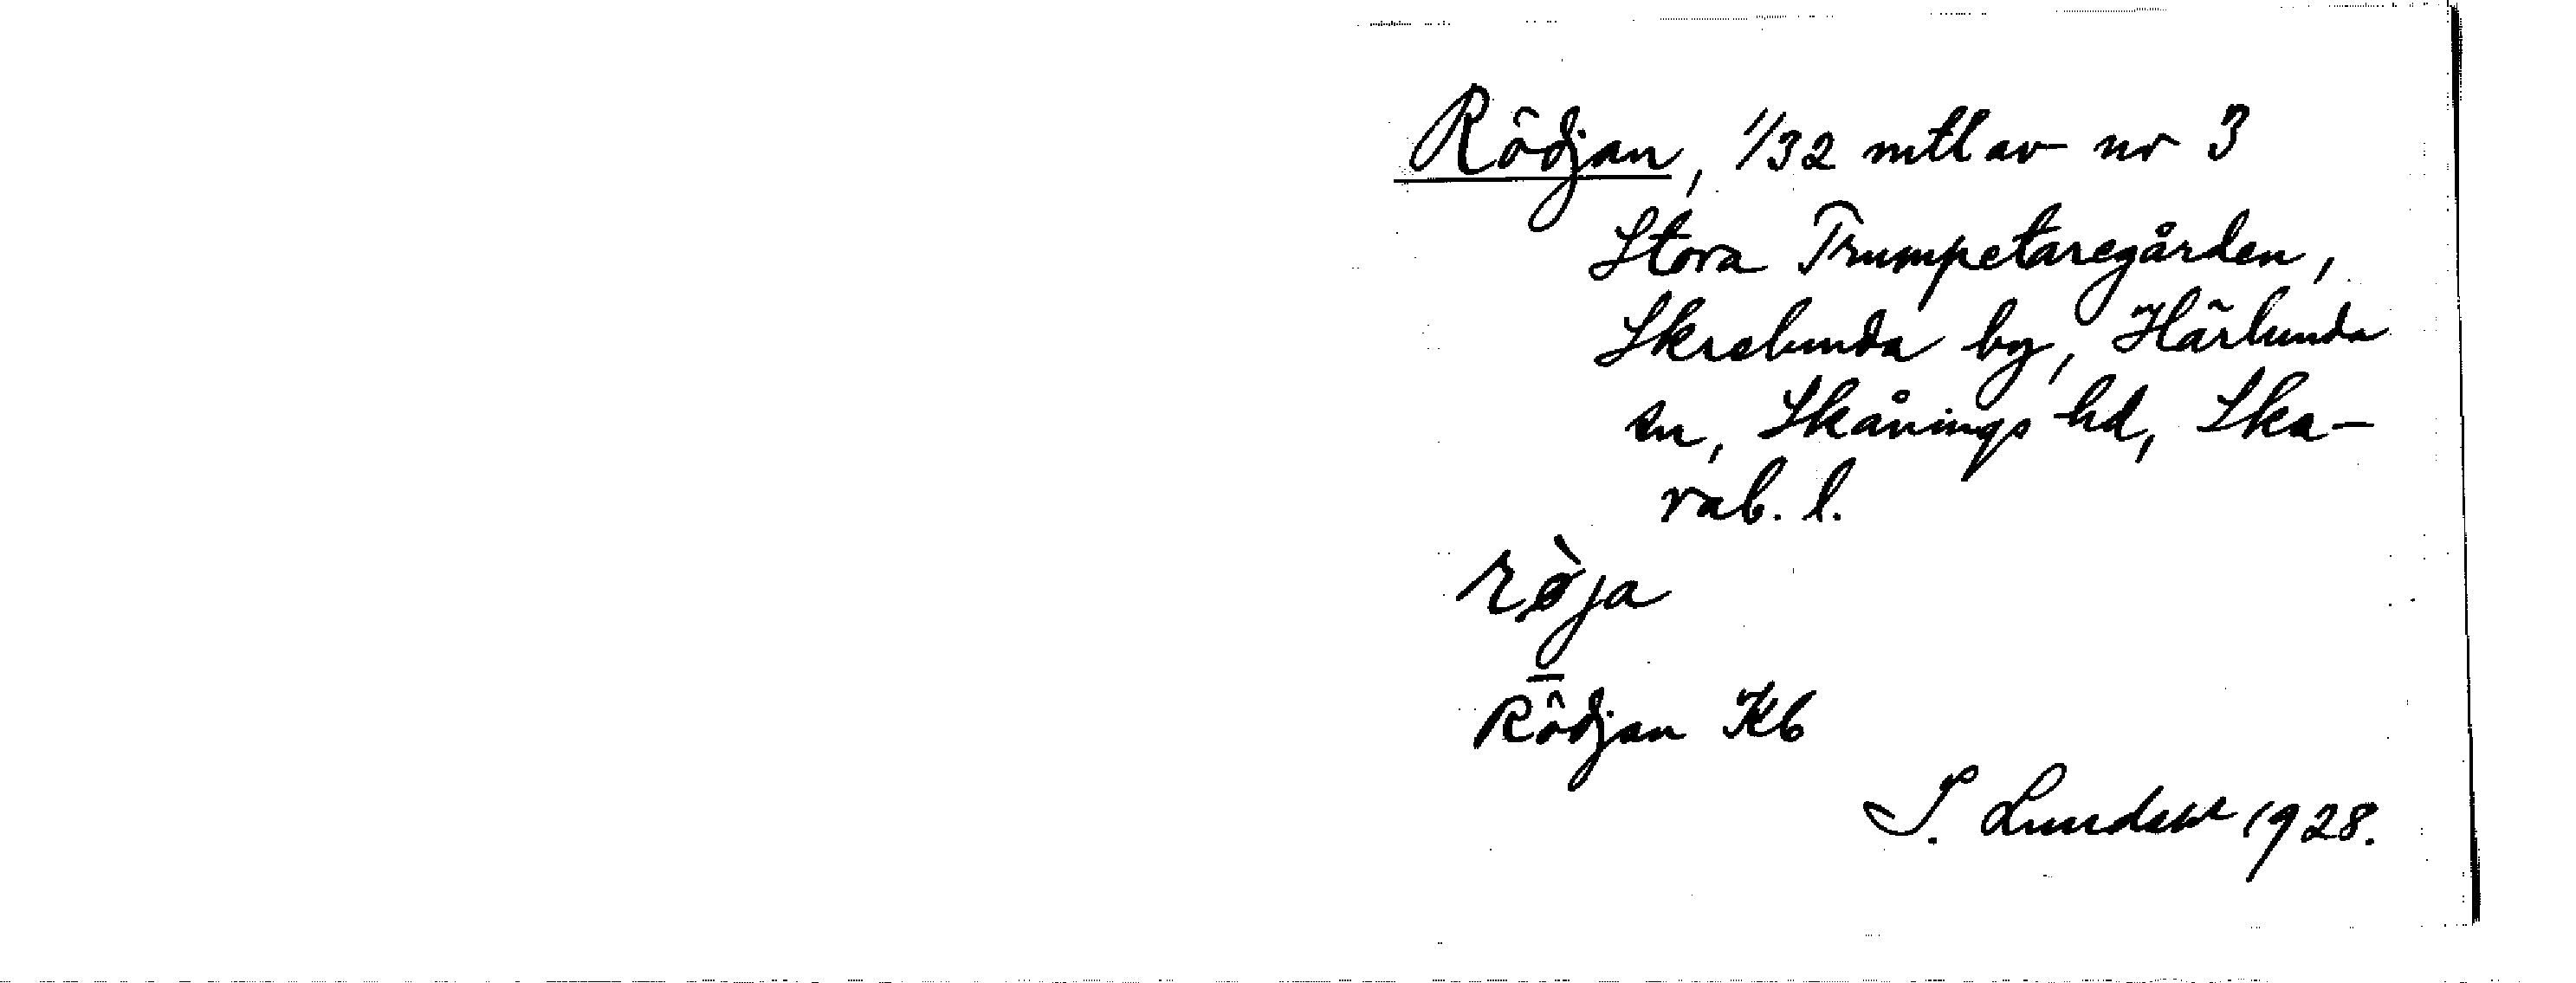 Rödjan, 1/32 mtl av nr 3
Stora Trumpetaregården,
Skrelunda by, Härlunda
sn, Skånings hd, Ska-
rab. l.
rø̀ja
Rödjan Kb
S. Lundahl 1928.